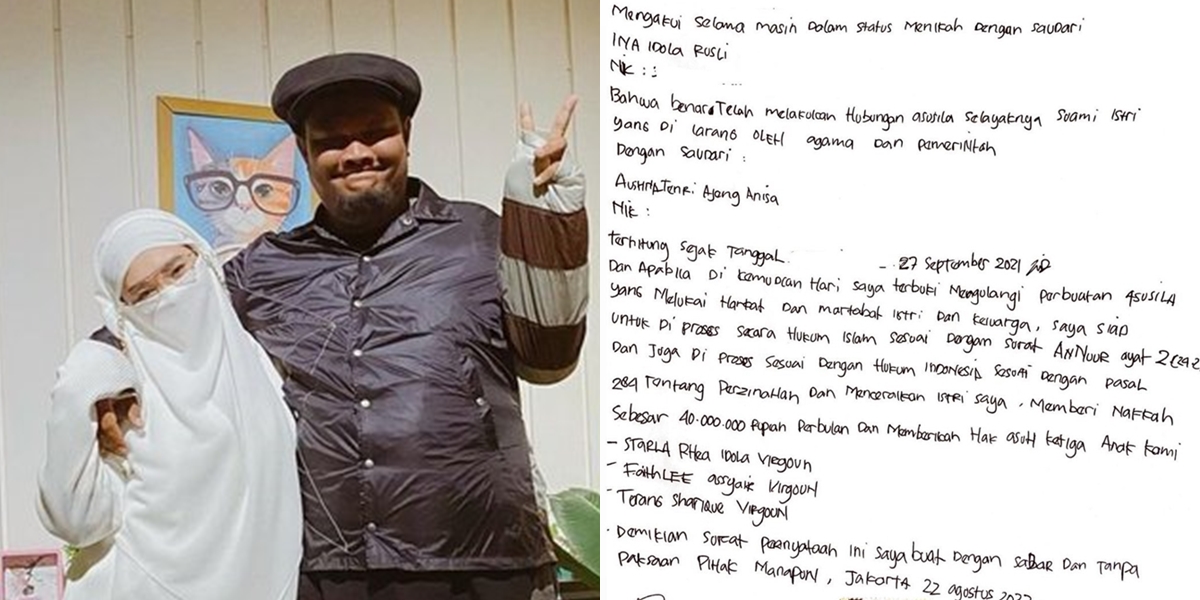 Mengakui selama masih Dalam status Menikah Dengan saudari
INA IDola RUSLI
Nik : :
Bahwa benar Telah melakukan Hubungan asusila selayaknya suami istri
yang Di larang OLEH agama Dan pemerintah
Dengan Saudari :
Tenri Ajeng Anisa
Nik :
terhitung sejak Tanggal - 27 September 2021
Dan Apabila Di kemudian Hari saya terbukti Mengulangi perbuatan ASUSILA
yang Melukai Harkat Dan martabat Istri Dan keluarga, saya siap
untuk Di proses secara Hukum Islam sesuai Dengan surat ANNUUR ayat 2 (24:2
Dan Juga Di proses sesuai Dengan Hukum INDONESIA sesuai Dengan pasal
284 Tentang Perzinahan Dan Menceraikan istri saya. Memberi Nafkah
sebesar 40.000.000 Rupiah Perbulan Dan Memberikan Hak asuh ketiga Anak kami
- STARLA RHea IDola VIRGOUN
- FaithLEE assyakir VIRGOUN
- Terang Sharique VIRGOUN
. Demikian surat pernyataan Ini saya buat Dengan saDar Dan Tanpa
paksaan Pihak Manapun, Jakarta 22 agustus